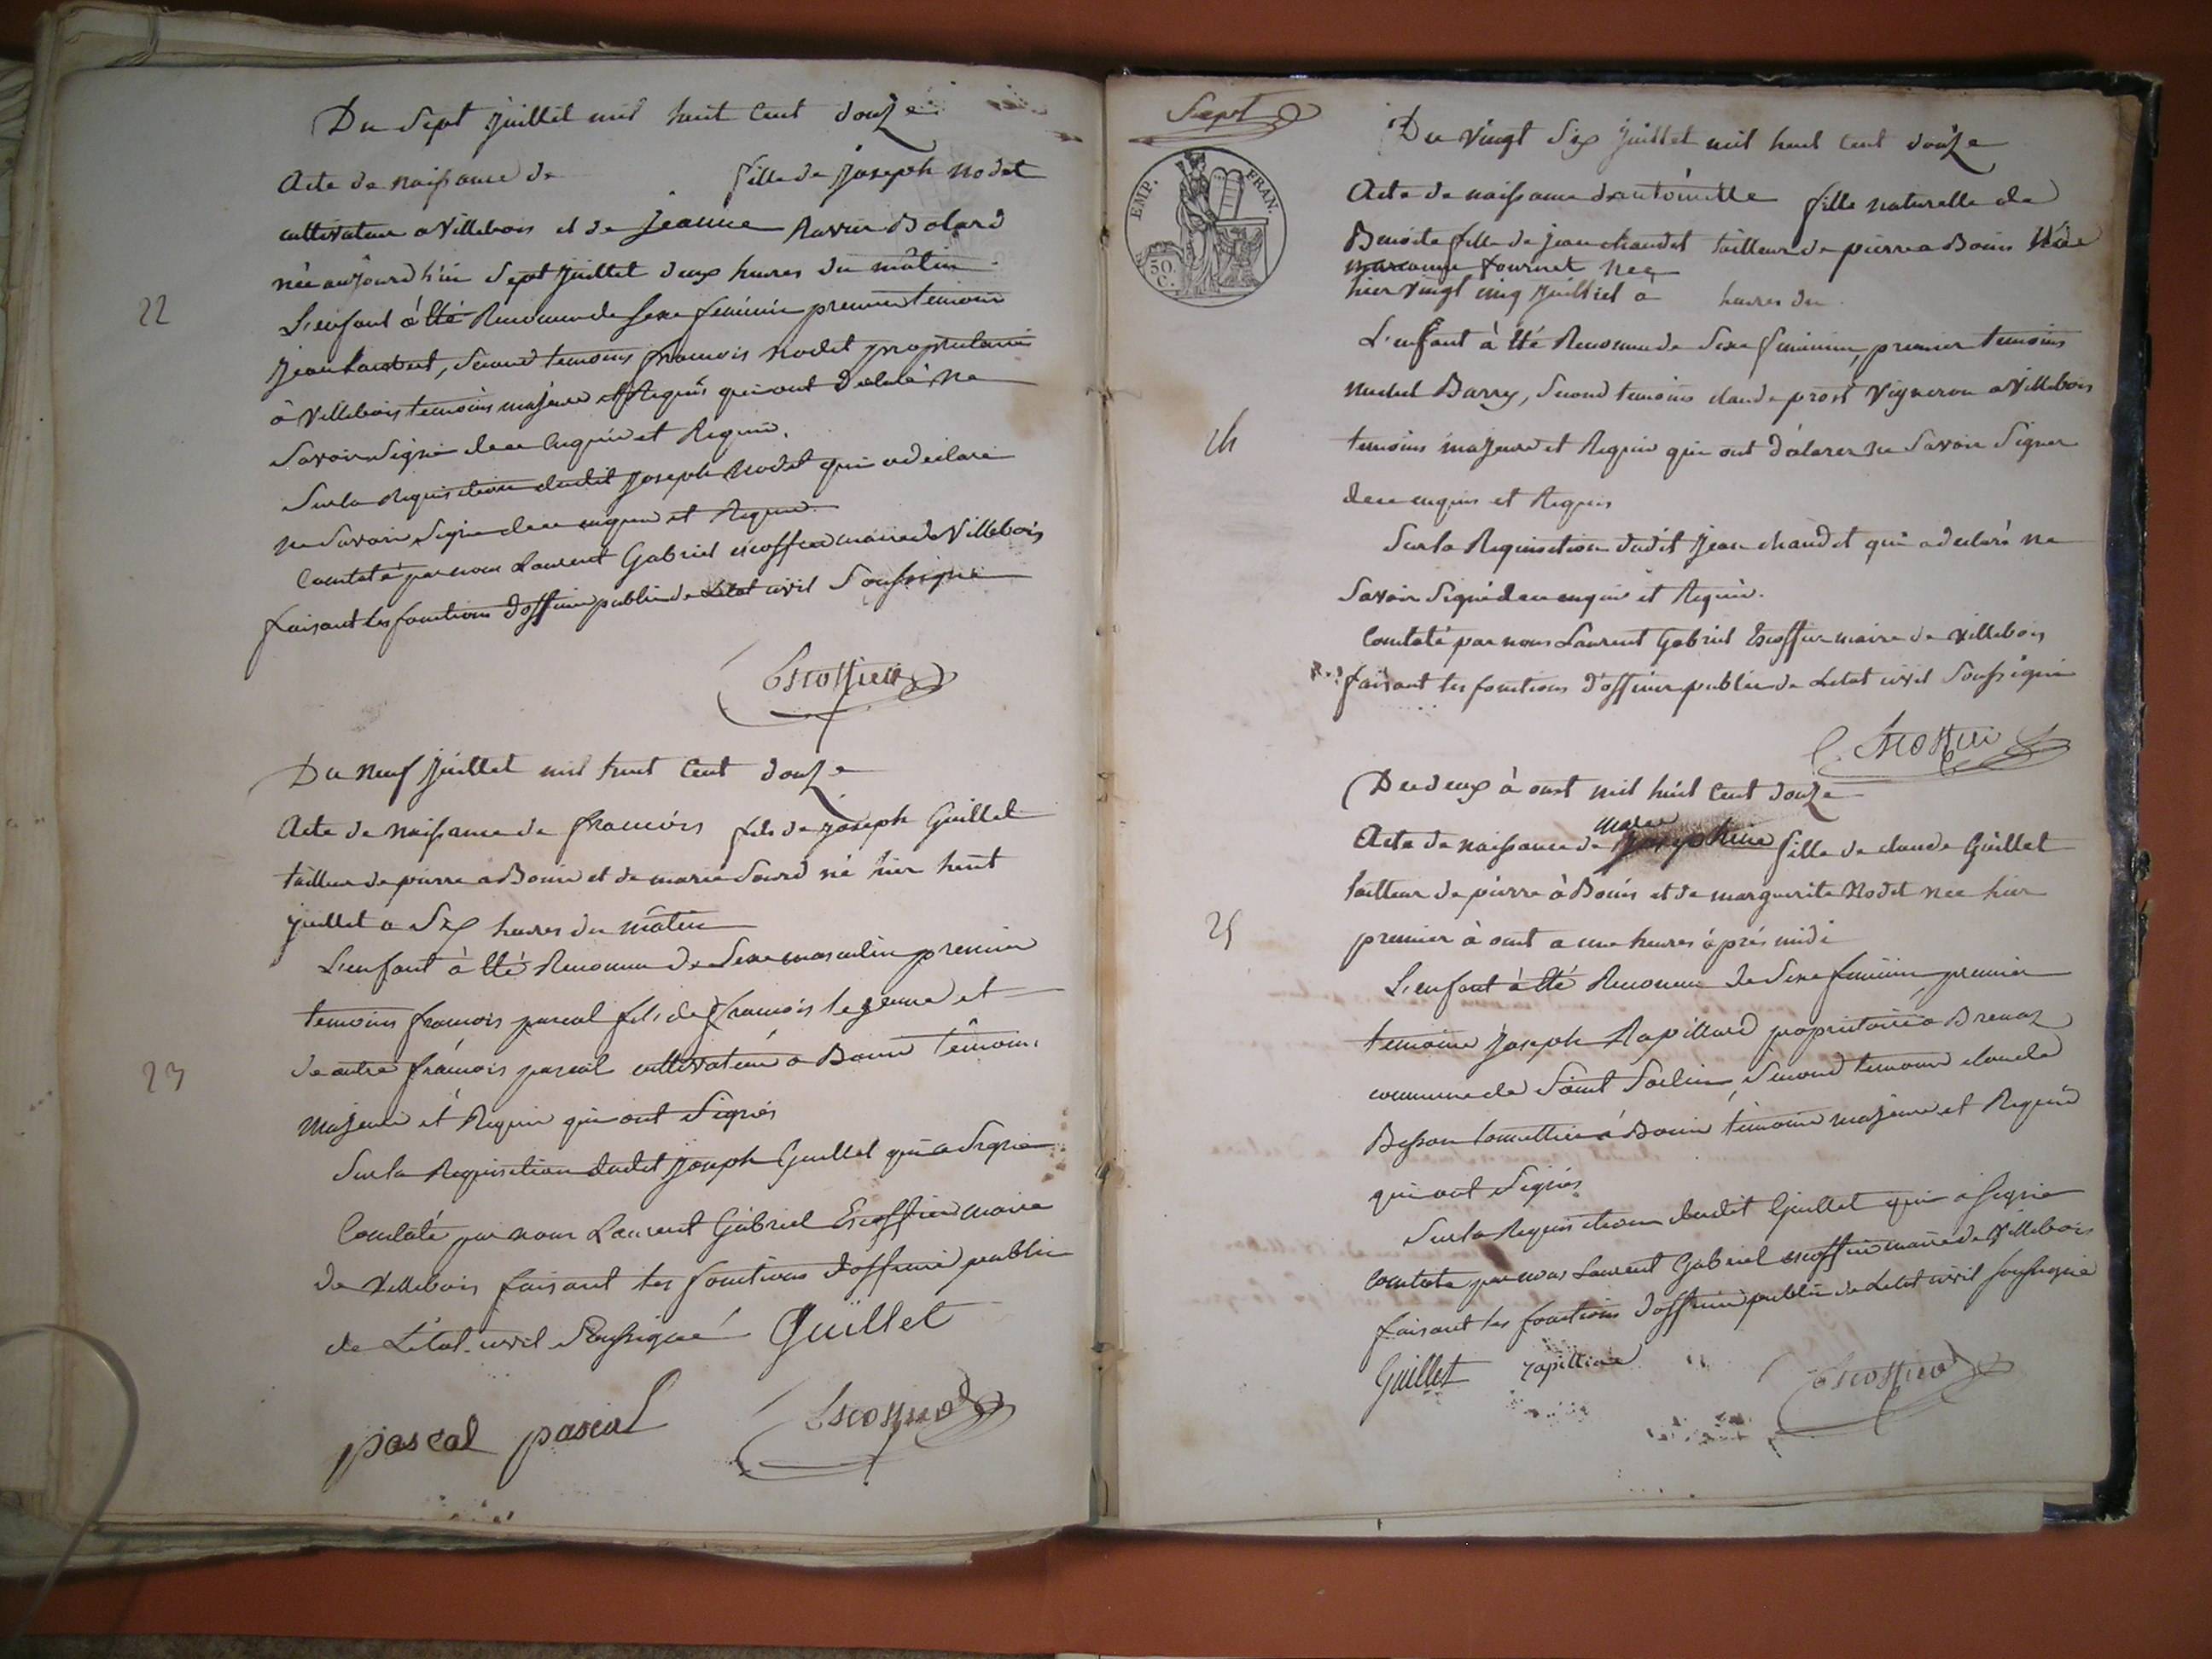 Du Sept juillet mil huit Cent douze
Acte de naissance de fille de joseph nodet
cultivateur a Villebois et de jeanne Ravier Bolard
née aujourd'hui Sept juillet deux heures du mâtin
22
L'enfant à été Reconnu de sexe feminin premier temoin
jean , second temoins francois nodet proprietaire
à Villebois temoins majeurs et Requis qui ont déclaré ne
savoir signé de ce enquis et Requis.
Sur la Requisition dudit joseph nodet qui a déclaré
ne savoir signé de ce enquis et Requis
Constaté par nous Laurent Gabriel escoffier maire de Villebois
faisant les fonctions d'officier public de Letat civil Soussigné
Escoffier
Du neuf juillet mil huit Cent douze
Acte de Naissance de francois fils de joseph Guillet
tailleur de pierre a Bouis et de marie Sourd né hier huit
juillet a Six heures du mâtin
L'enfant à été Reconnu de Sexe masculin premier
temoins francois pascal fils de francois le jeune et
de autre francois pascal cultivateur a Bouis temoins
23
majeurs et Requis qui ont Signés
Sur la Requisition dudit joseph Guillet qui a Signé
Constaté par nous Laurent Gabriel Escoffier maire
de Villebois faisant les fonctions d'officier public
de L'état civil Soussigné Guillet
pascal pascal Escoffier
Sept
EMP. FRAN.
50 C.
Du Vingt Six juillet mil huit Cent douze
Acte de naissance dantoinette fille naturelle de
Benoite fille de jean chaudet tailleur de pierre a Bouis
fournet nee
hier vingt cinq juilliet à heures du
L'enfant à été Reconnu de Sexe feminin, premier temoins
michel Barry, second temoins claude prost Vigneron a Villebois
24
temoins majeurs et Requis qui ont déclarer ne Savoir Signer
de ce enquis et Requis
Sur la Requisition dudit jean chaudet qui a declaré ne
Savoir Signé de ce enquis et Requis.
Constaté par nous Laurent Gabriel Escoffier maire de villebois
faisant les fonctions d'officier public de Letat civil Soussigné
Escoffier
Du deux à oust mil huit Cent douze
marie
Acte de naissance de josephine fille de claude Guillet
tailleur de pierre à Bouis et de marguerite Nodet née hier
25
premier à oust a une heures après midi
L'enfant à été Reconnu de Sexe feminin, premier
temoins joseph Rapillard proprietaire a Brenaz
commune de Saint Sorlin, Second temoin claude
Besson à Bouis temoins majeurs et Requis
qui ont Signés
Sur la Requisition dudit Guillet qui a signé
Constaté par nous Laurent Gabriel escoffier maire de Villebois
faisant les fonctions d'officier public de Letat civil soussigné
Guillet Escoffier